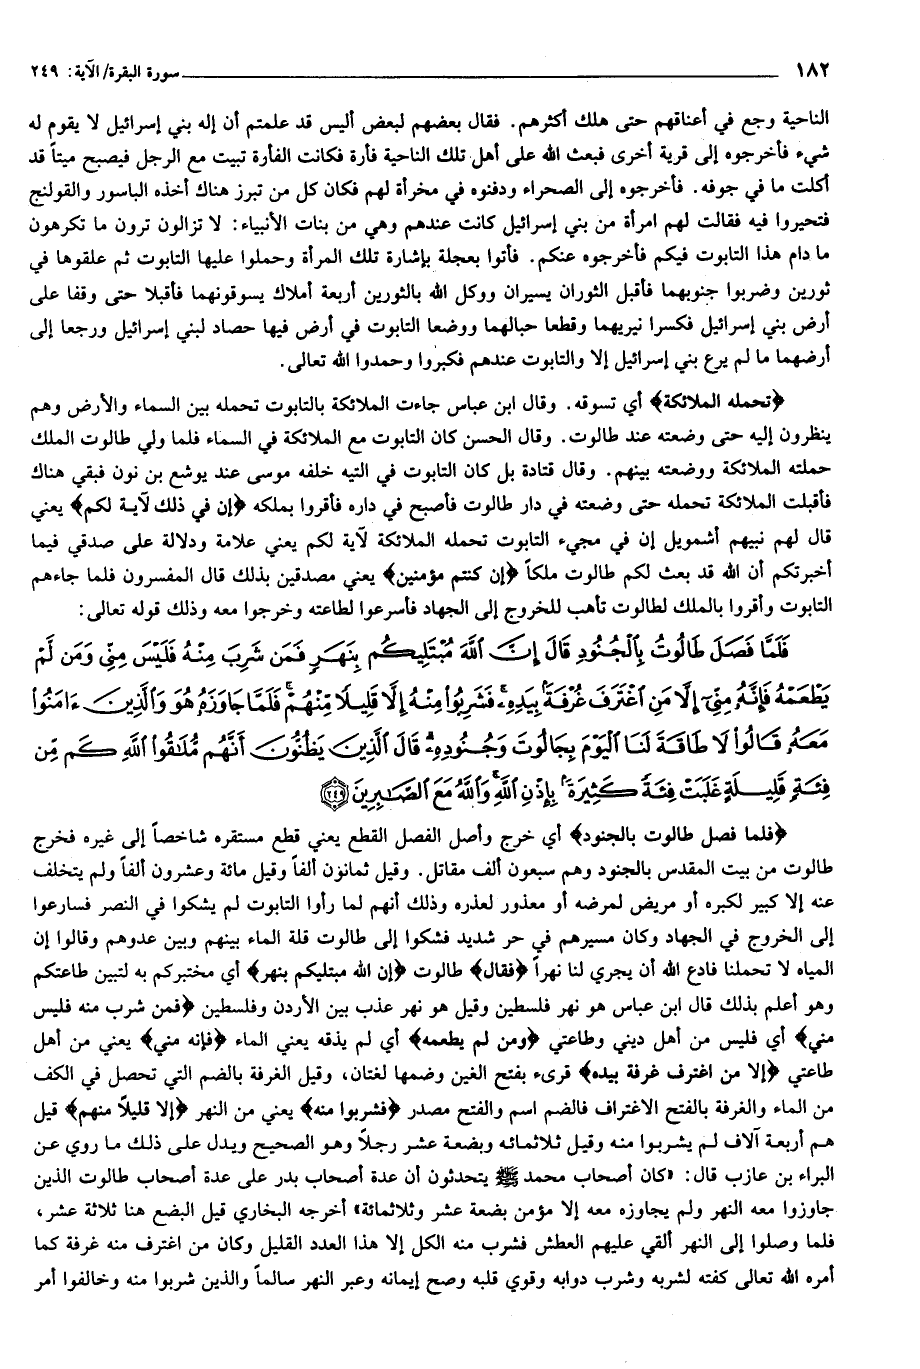 ١٨٢ سورة البقرة/ الآية: ٢٤٩
الناحية وجع في أعناقهم حتى هلك أكثرهم. فقال بعضهم لبعض أليس قد علمتم أن إله بني إسرائيل لا يقوم له
شيء فأخرجوه إلى قرية أخرى فبعث الله على أهل تلك الناحية فأرة فكانت الفأرة تبيت مع الرجل فيصبح ميتاً قد
أكلت ما في جوفه. فأخرجوه إلى الصحراء ودفنوه في مخرأة لهم فكان كل من تبرز هناك أخذه الباسور والقولنج
فتحيروا فيه فقالت لهم امرأة من بني إسرائيل كانت عندهم وهي من بنات الأنبياء: لا تزالون ترون ما تكرهون
ما دام هذا التابوت فيكم فأخرجوه عنكم. فأتوا بعجلة بإشارة تلك المرأة وحملوا عليها التابوت ثم علقوها في
ثورين وضربوا جنوبهما فأقبل الثوران يسيران ووكل الله بالثورين أربعة أملاك يسوقونهما فأقبلا حتى وقفا على
أرض بني إسرائيل فكسرا نيريهما وقطعا حبالهما ووضعا التابوت في أرض فيها حصاد لبني إسرائيل ورجعا إلى
أرضهما ما لم يرع بني إسرائيل إلا والتابوت عندهم فكبروا وحمدوا الله تعالى.
﴿تحمله الملائكة﴾ أي تسوقه. وقال ابن عباس جاءت الملائكة بالتابوت تحمله بين السماء والأرض وهم
ينظرون إليه حتى وضعته عند طالوت. وقال الحسن كان التابوت مع الملائكة في السماء فلما ولي طالوت الملك
حملته الملائكة ووضعته بينهم. وقال قتادة بل كان التابوت في التيه خلفه موسى عند يوشع بن نون فبقي هناك
فأقبلت الملائكة تحمله حتى وضعته في دار طالوت فأصبح في داره فأقروا بملكه ﴿إن في ذلك لآية لكم﴾ يعني
قال لهم نبيهم أشمويل إن في مجيء التابوت تحمله الملائكة لآية لكم يعني علامة ودلالة على صدقي فيما
أخبرتكم أن الله قد بعث لكم طالوت ملكاً ﴿إن كنتم مؤمنين﴾ يعني مصدقين بذلك قال المفسرون فلما جاءهم
التابوت وأقروا بالملك لطالوت تأهب للخروج إلى الجهاد فأسرعوا لطاعته وخرجوا معه وذلك قوله تعالى:
فَلَمَّا فَصَلَ طَالُوتُ بِالْجُنُودِ قَالَ إِنَّ اللَّهَ مُبْتَلِيكُم بِنَهَرٍ فَمَن شَرِبَ مِنْهُ فَلَيْسَ مِنِّي وَمَن لَّمْ
يَطْعَمْهُ فَإِنَّهُ مِنِّي إِلَّا مَنِ اغْتَرَفَ غُرْفَةً بِيَدِهِ ۚ فَشَرِبُوا مِنْهُ إِلَّا قَلِيلًا مِّنْهُمْ ۚ فَلَمَّا جَاوَزَهُ هُوَ وَالَّذِينَ ءَامَنُوا
مَعَهُ قَالُوا لَا طَاقَةَ لَنَا الْيَوْمَ بِجَالُوتَ وَجُنُودِهِ ۚ قَالَ الَّذِينَ يَظُنُّونَ أَنَّهُم مُّلَاقُوا اللَّهِ كَم مِّن
فِئَةٍ قَلِيلَةٍ غَلَبَتْ فِئَةً كَثِيرَةً بِإِذْنِ اللَّهِ ۗ وَاللَّهُ مَعَ الصَّابِرِينَ ٢٤٩
﴿فلما فصل طالوت بالجنود﴾ أي خرج وأصل الفصل القطع يعني قطع مستقره شاخصاً إلى غيره فخرج
طالوت من بيت المقدس بالجنود وهم سبعون ألف مقاتل. وقيل ثمانون ألفاً وقيل مائة وعشرون ألفاً ولم يتخلف
عنه إلا كبير لكبره أو مريض لمرضه أو معذور لعذره وذلك أنهم لما رأوا التابوت لم يشكوا في النصر فسارعوا
إلى الخروج في الجهاد وكان مسيرهم في حر شديد فشكوا إلى طالوت قلة الماء بينهم وبين عدوهم وقالوا إن
المياه لا تحملنا فادع الله أن يجري لنا نهراً ﴿فقال﴾ طالوت ﴿إن الله مبتليكم بنهر﴾ أي مختبركم به لتبين طاعتكم
وهو أعلم بذلك قال ابن عباس هو نهر فلسطين وقيل هو نهر عذب بين الأردن وفلسطين ﴿فمن شرب منه فليس
مني﴾ أي فليس من أهل ديني وطاعتي ﴿ومن لم يطعمه﴾ أي لم يذقه يعني الماء ﴿فإنه مني﴾ يعني من أهل
طاعتي ﴿إلا من اغترف غرفة بيده﴾ قرىء بفتح الغين وضمها لغتان، وقيل الغرفة بالضم التي تحصل في الكف
من الماء والغرفة بالفتح الاغتراف فالضم اسم والفتح مصدر ﴿فشربوا منه﴾ يعني من النهر ﴿إلا قليلاً منهم﴾ قيل
هم أربعة آلاف لم يشربوا منه وقيل ثلاثمائه وبضعة عشر رجلاً وهو الصحيح ويدل على ذلك ما روي عن
البراء بن عازب قال: «كان أصحاب محمد ﷺ يتحدثون أن عدة أصحاب بدر على عدة أصحاب طالوت الذين
جاوزوا معه النهر ولم يجاوزه معه إلا مؤمن بضعة عشر وثلاثمائة» أخرجه البخاري قيل البضع هنا ثلاثة عشر،
فلما وصلوا إلى النهر ألقي عليهم العطش فشرب منه الكل إلا هذا العدد القليل وكان من اغترف منه غرفة كما
أمره الله تعالى كفته لشربه وشرب دوابه وقوي قلبه وصح إيمانه وعبر النهر سالماً والذين شربوا منه وخالفوا أمر